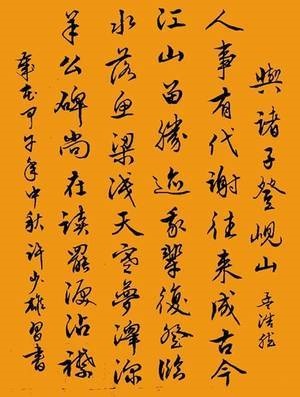 與諸子登峴山 孟浩然
人事有代謝往来成古今
江山留勝迹我輩復登臨
水落鱼梁浅天寒夢澤深
羊公碑尚在读罷淚沾襟
歲在甲午年中秋许少雄習書